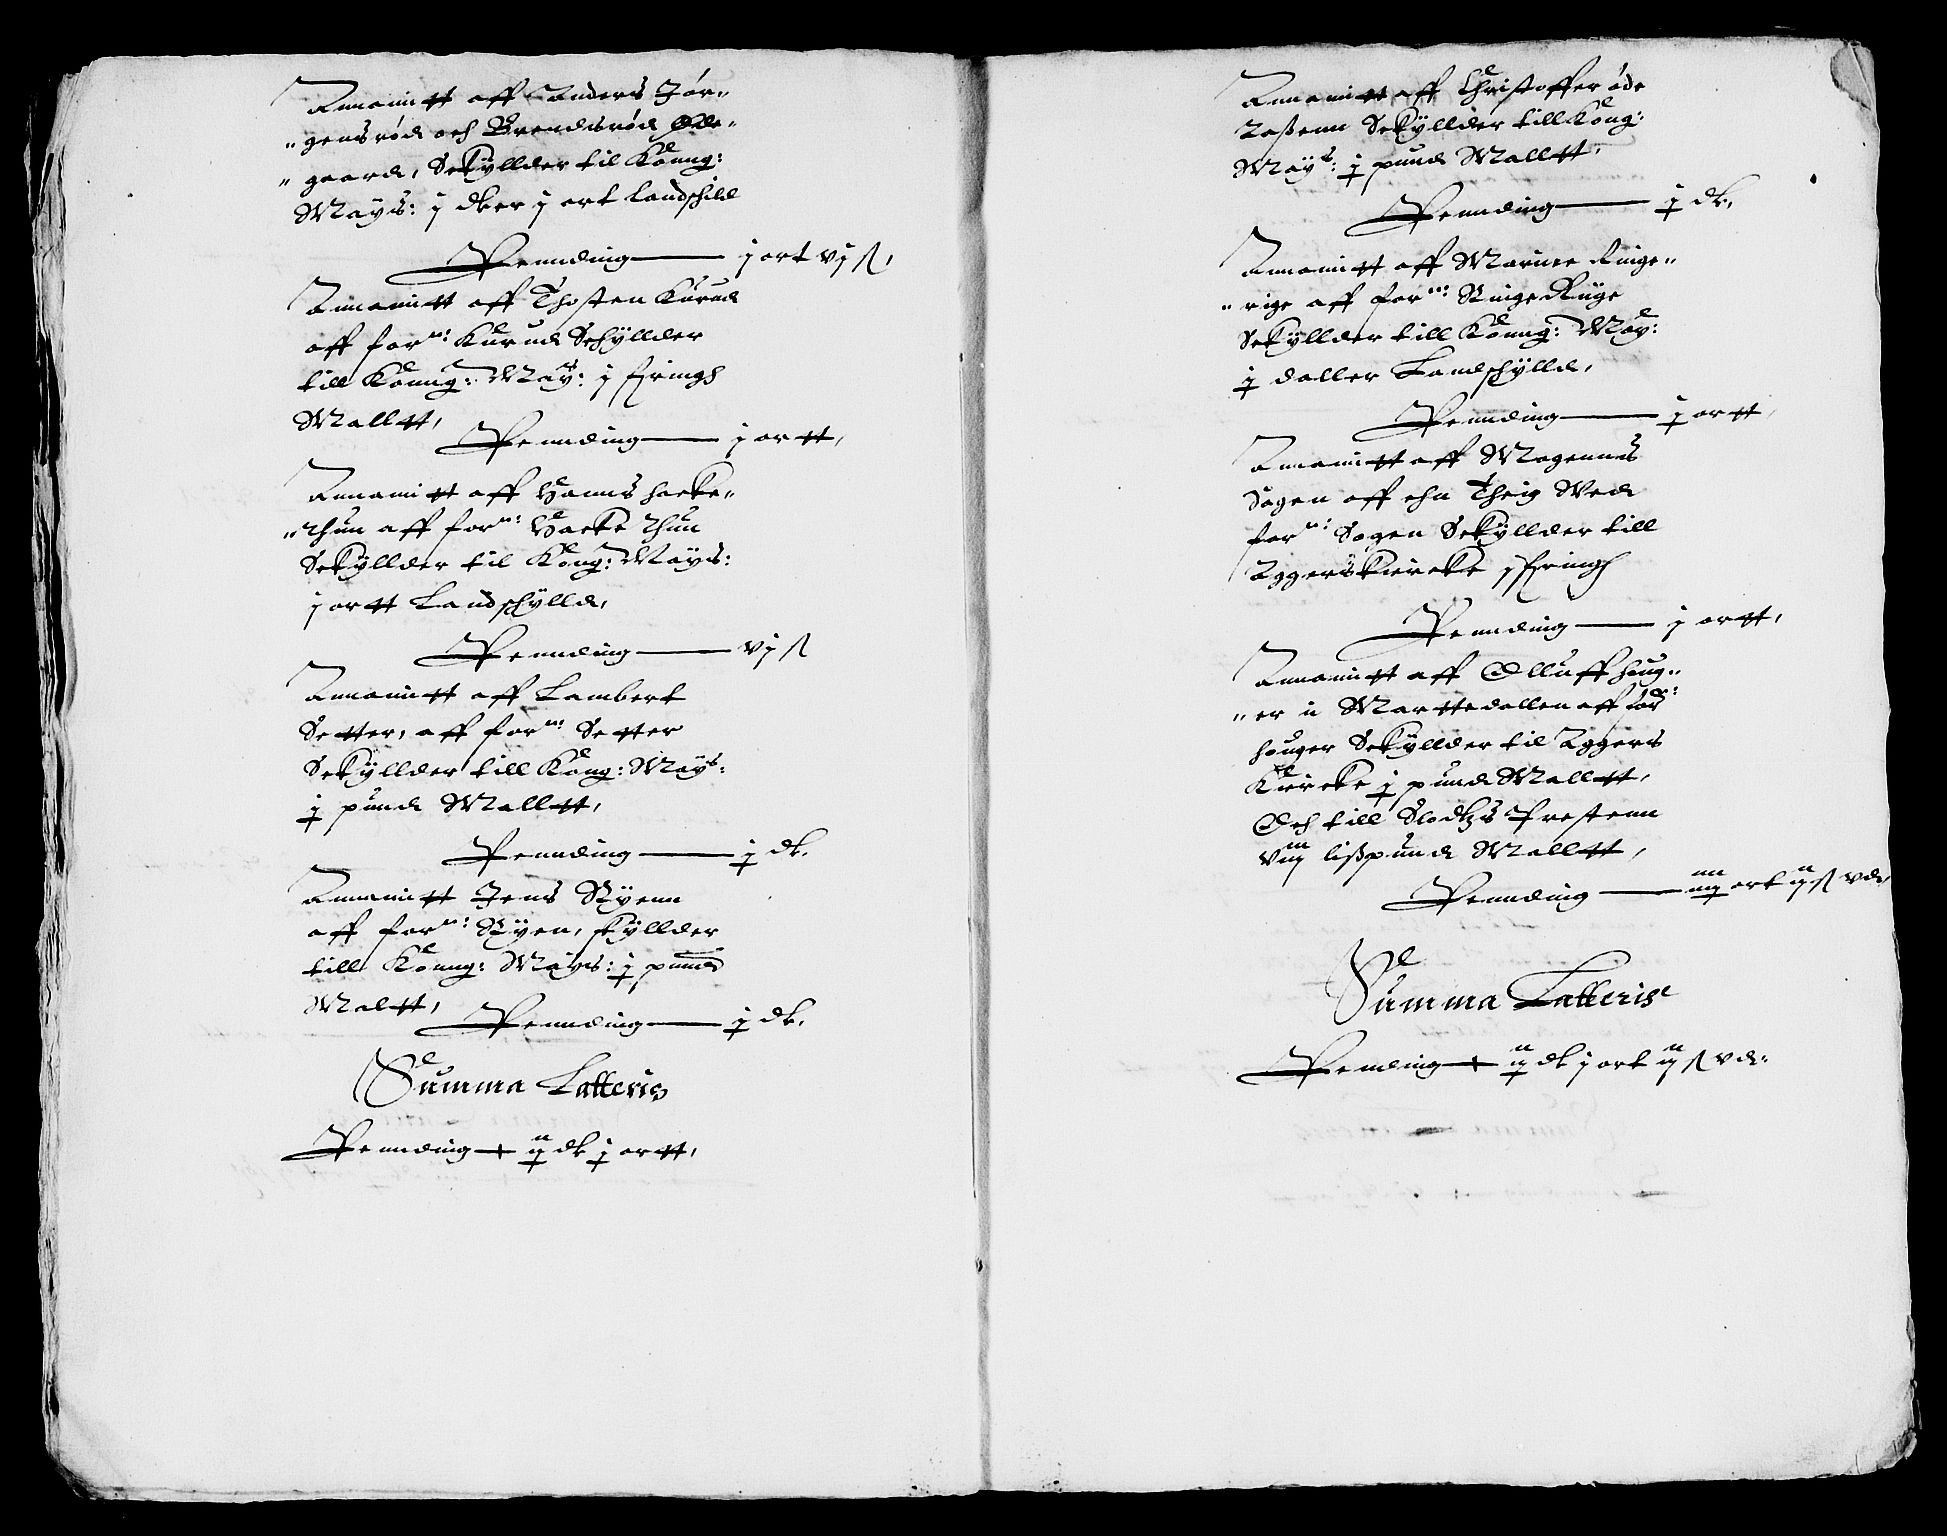 Annamitt aff Anders Jør„
„ gensrød och Brendsrød Øde„
„ gaard, Sckyllder til Konng:
Mays: j dler j ort landschild
Pennding —— j ort vj ß,
Annamitt aff Thosten Kurud
aff forne: Kurud Schyllder
till Konng: Mays: j fring
Malltt,
Pennding —— j ortt,
Annamitt aff Hanns hacke„
„ thun aff forne: Hacke thun
Sckyllder til Kong: Mays:
j ortt Landschylld,
Pennding —— vj ß
Annamitt aff Lambert
Setter, aff forne: Setter
Sckyllder till Kong: Mays:
j pund Malltt,
Pennding —— j dl.
Annamitt Jens Ryenn
aff forne: Ryen, skyllder
till Konng: Mays: j pund
Maltt,
Pennding —— j dl.
Summa Latteris
Pennding — ij dl j ortt,
Annamitt aff Christoffer øde
Aaßenn Sckyllder till Kong:
Mays: j pund Malltt,
Pennding —— j dl.
Annamitt aff Marnee Ringe„
„ rige aff forne: Ringe Riige
Sckyllder till Konng: May:
j daller Landschylld,
Pennding —— j ortt,
Annamitt aff Mogenns
Sogen aff ehn Theig Wed
forne: Sogen Sckyllder till
Aggerskiercke j fring
Pennding —— j ortt,
Annamitt aff Olluff houg„
„ er ii Marttedallen aff for:
houger Sckyllder til Aggers
Kiercke j pund Malltt,
Och till Slodtzs Prestenn
viij lißpund Malltt,
Pennding —— iiij ort ij ß v d,
Summa Latteris
Pennding — ij dl j ort ij ß v d: